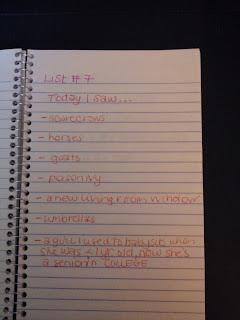 List # 7
Today I saw...
- scarecrows
- horses
- goats
- poison ivy
- a new living room window
- umbrellas
- a girl I used to babysit when
she was < 1 yr. old, now she's
a senior in COLLEGE